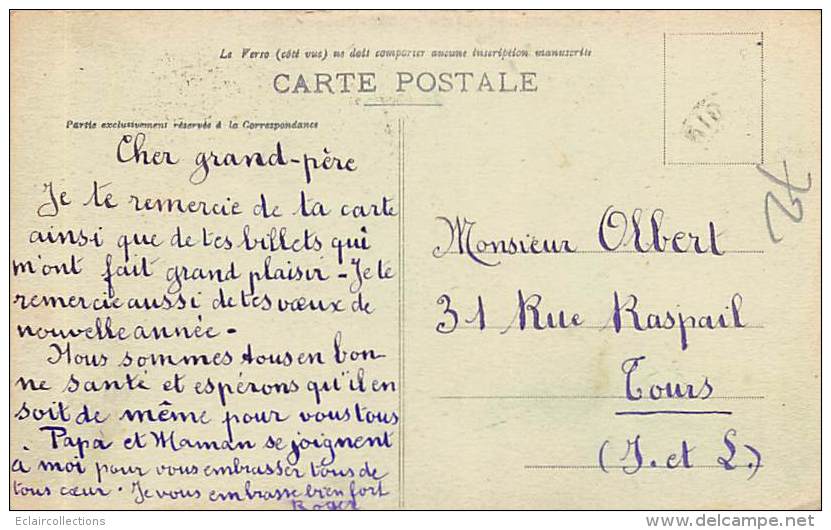 Le Verso (côté vue) ne doit comporter aucune inscription manuscrite
CARTE POSTALE
Partie exclusivement réservée à la Correspondance
Cher grand-père
Je te remercie de ta carte
ainsi que de tes billets qui
m'ont fait grand plaisir - Je te
remercie aussi de tes vœux de
nouvelle année -
Nous sommes tous en bon-
ne santé et espérons qu'il en
soit de même pour vous tous
. Papa et Maman se joignent
à moi pour vous embrasser tous de
tous cœur. Je vous embrasse bien fort
Roger
Monsieur Olbert
31 Rue Raspail
Tours
(I. et L.)
72
Eclaircollections
delcampe.net